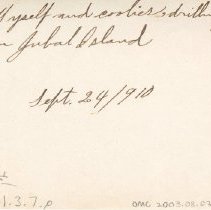 Myself and coolies drilling
on Jubal Island
Sept. 24/910
1.3.7.p
OMC 2003.08.03